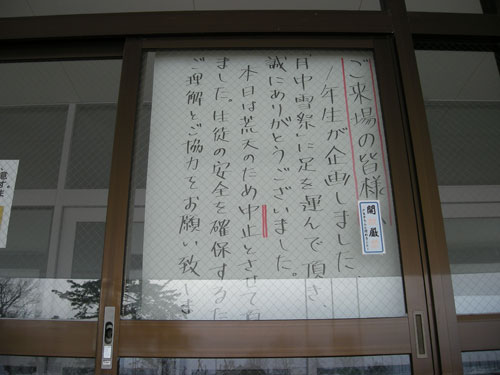 ご来場の皆様へ
1年生が企画しました
月中雪祭」に足を運んで頂き、
誠にありがとうございました。
本日は荒天のため中止とさせて
ました。生徒の安全を確保するた
ご理解とご協力をお願い致しま
開 厳